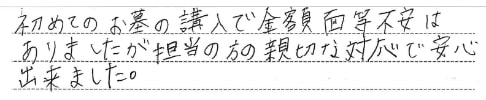 初めてのお墓の購入で金額面等不安は
ありましたが担当の方の親切な対応で安心
出来ました。